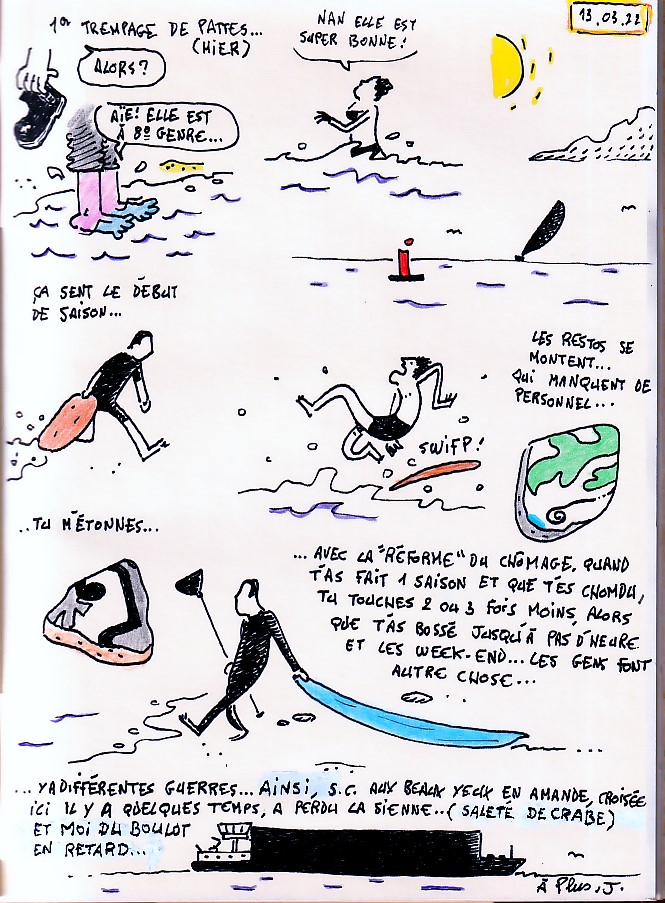 13.03.22
1er TREMPAGE DE PATTES...
(HIER)
ALORS?
AÏE! ELLE EST
À 8° GENRE...
NAN ELLE EST
SUPER BONNE!
ÇA SENT LE DÉBUT
DE SAISON...
SWIFP!
LES RESTOS SE
MONTENT...
QUI MANQUENT DE
PERSONNEL...
..TU M'ÉTONNES...
... AVEC LA "RÉFORME" DU CHÔMAGE, QUAND
T'AS FAIT 1 SAISON ET QUE T'ES CHOMDU,
TU TOUCHES 2 OU 3 FOIS MOINS, ALORS
QUE T'AS BOSSÉ JUSQU'À PAS D'HEURE
ET LES WEEK-END... LES GENS FONT
AUTRE CHOSE...
... YA DIFFÉRENTES GUERRES... AINSI, S.C. AUX BEAUX YEUX EN AMANDE, CROISÉE
ICI IL Y A QUELQUES TEMPS, A PERDU LA SIENNE..(SALETÉ DE CRABE)
ET MOI DU BOULOT
EN RETARD...
À Plus, J.